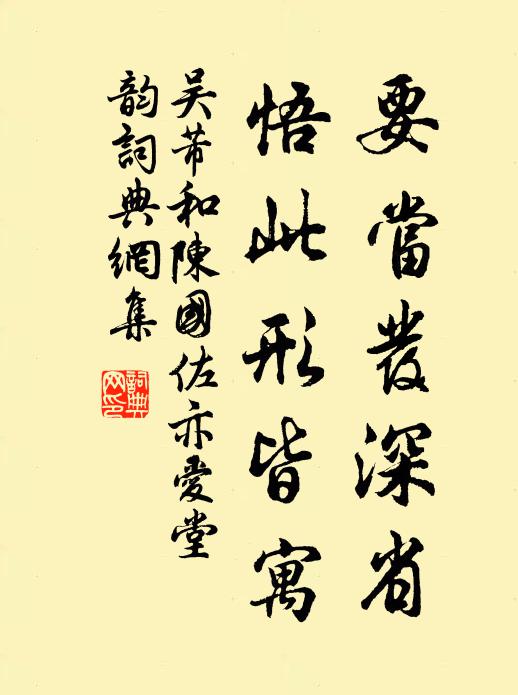 要當發深省
悟此形皆寓
吴芾和陳國佐亦愛堂
韵詞典網集
詞典网印